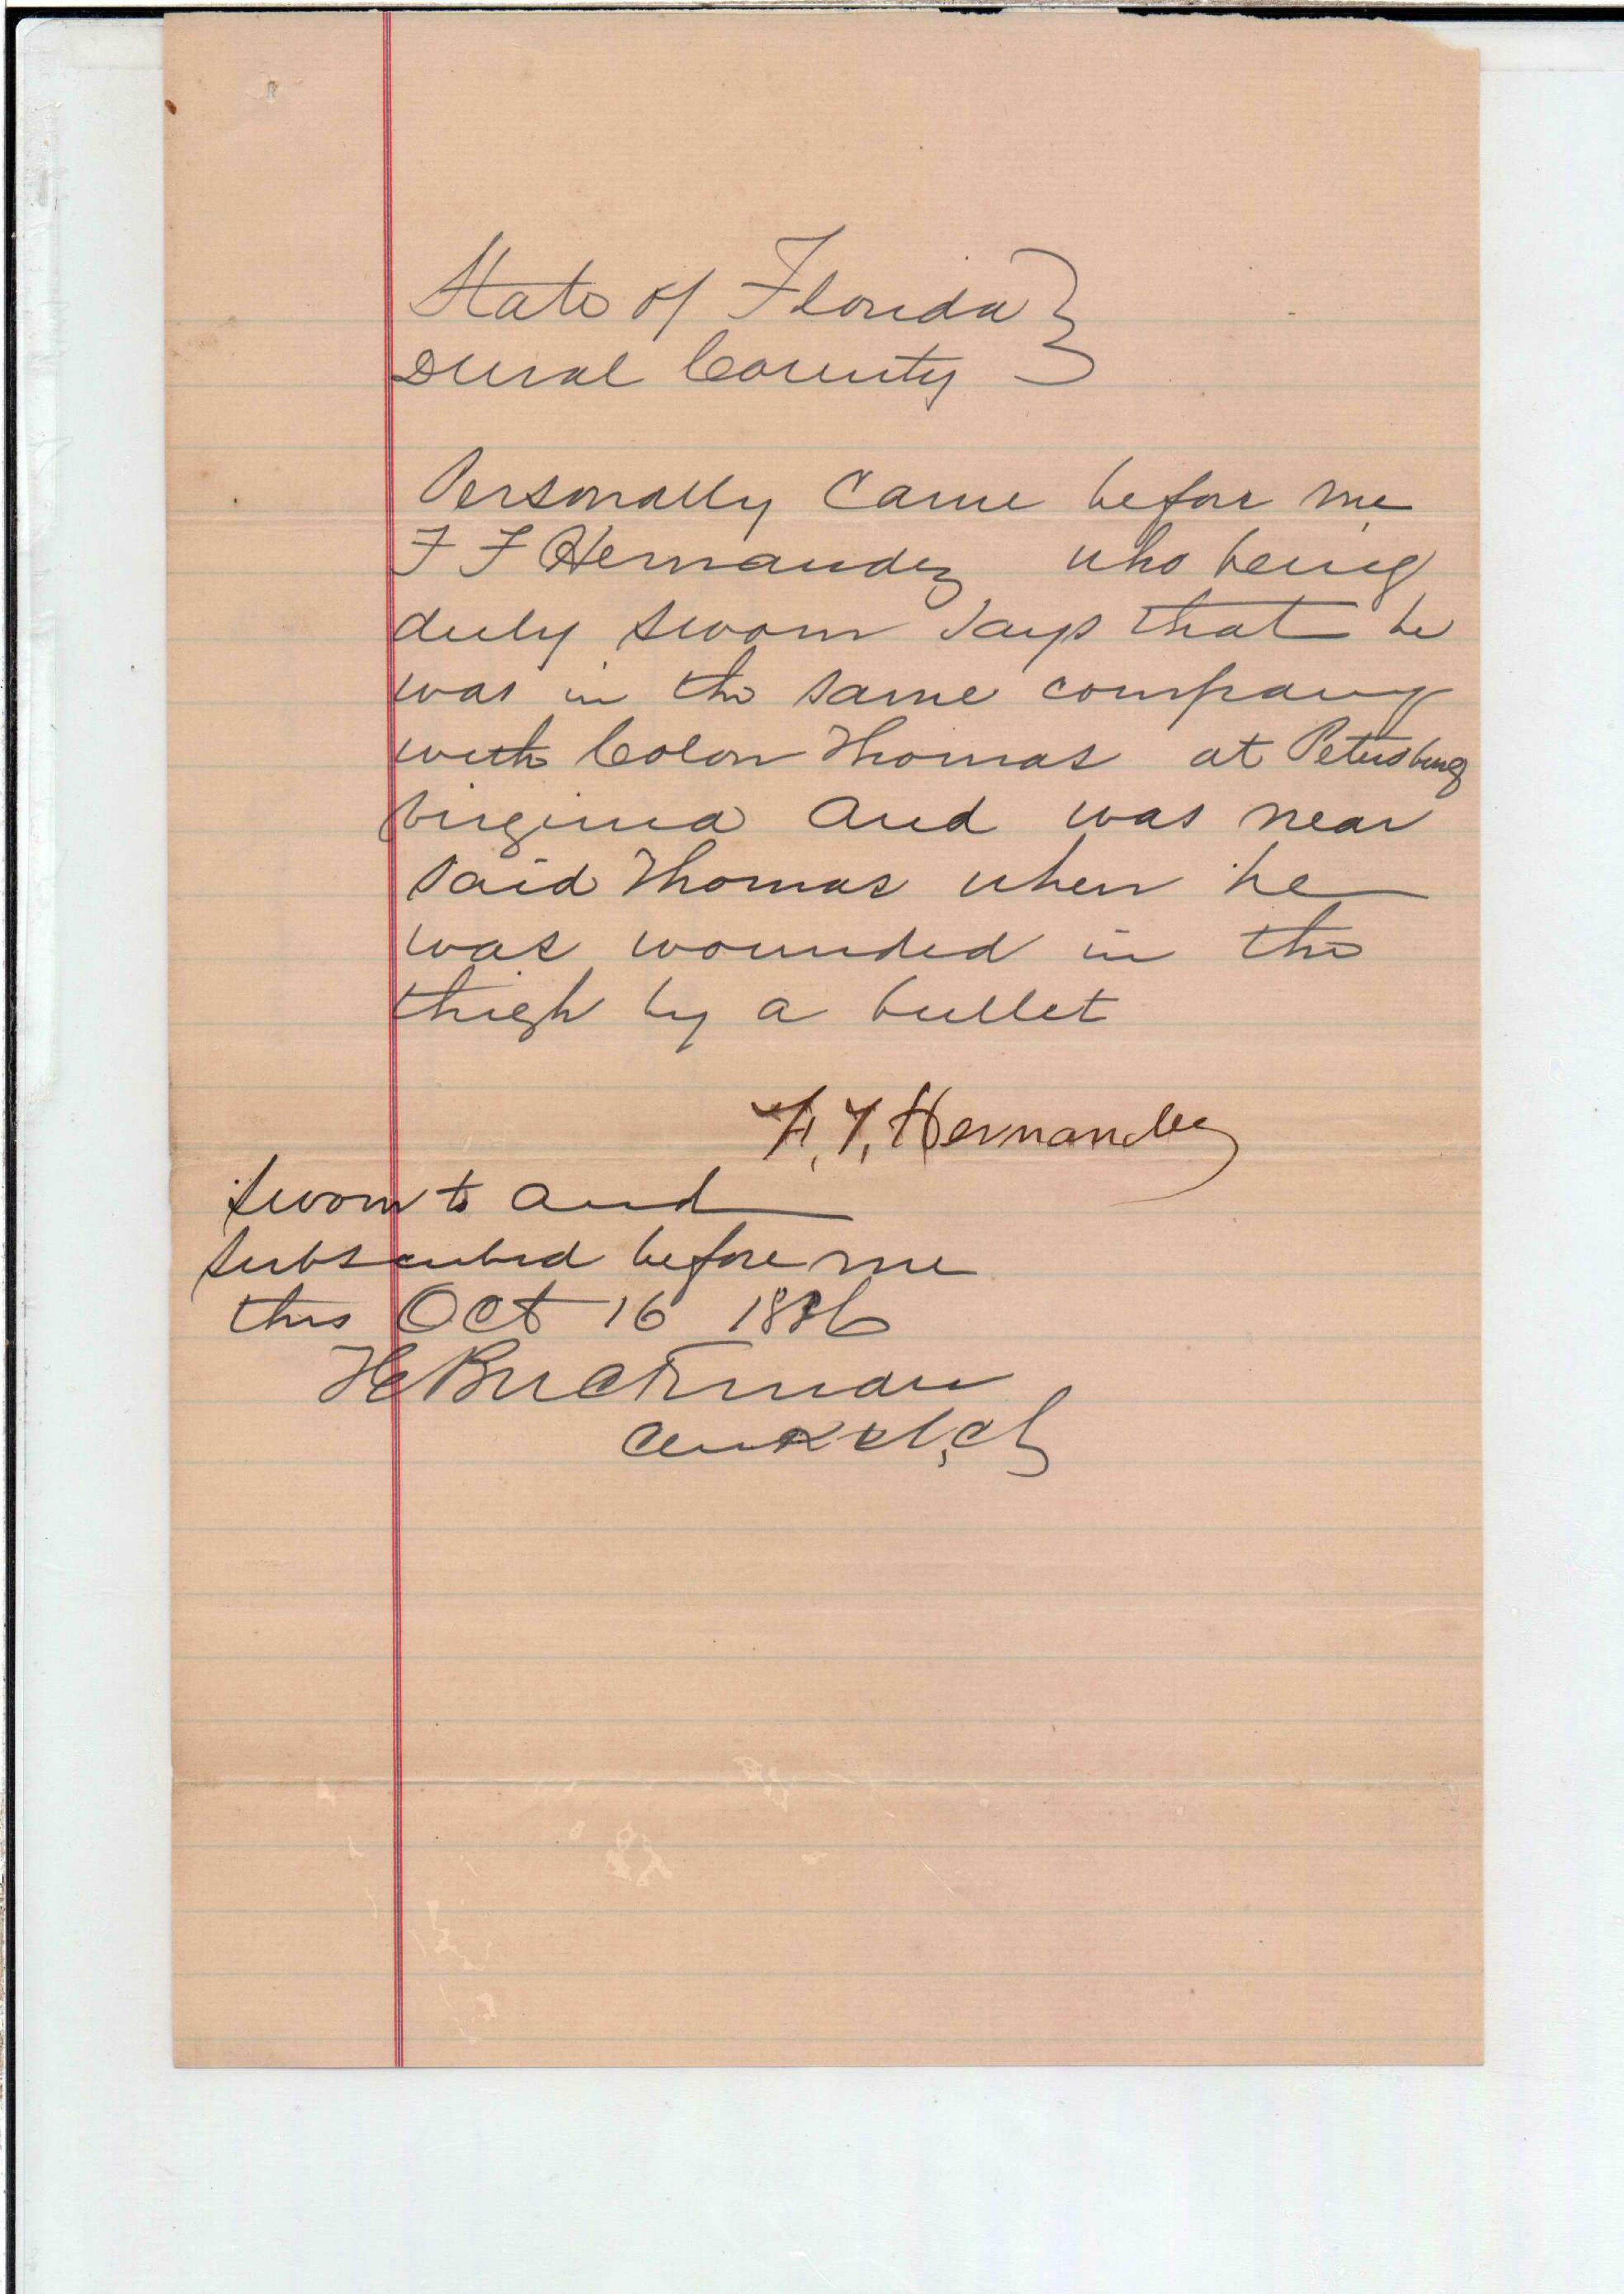 State of Florida }
Duval County }
Personally came before me
F F Hernandez who being
duly sworn says that he
was in the same company
with Colon Thomas at Petersburg
Virginia and was near
said Thomas when he
was wounded in the
thigh by a bullet
F. F. Hernandez
Sworn to and
subscribed before me
this Oct 16 1886
H Buckman
Clerk